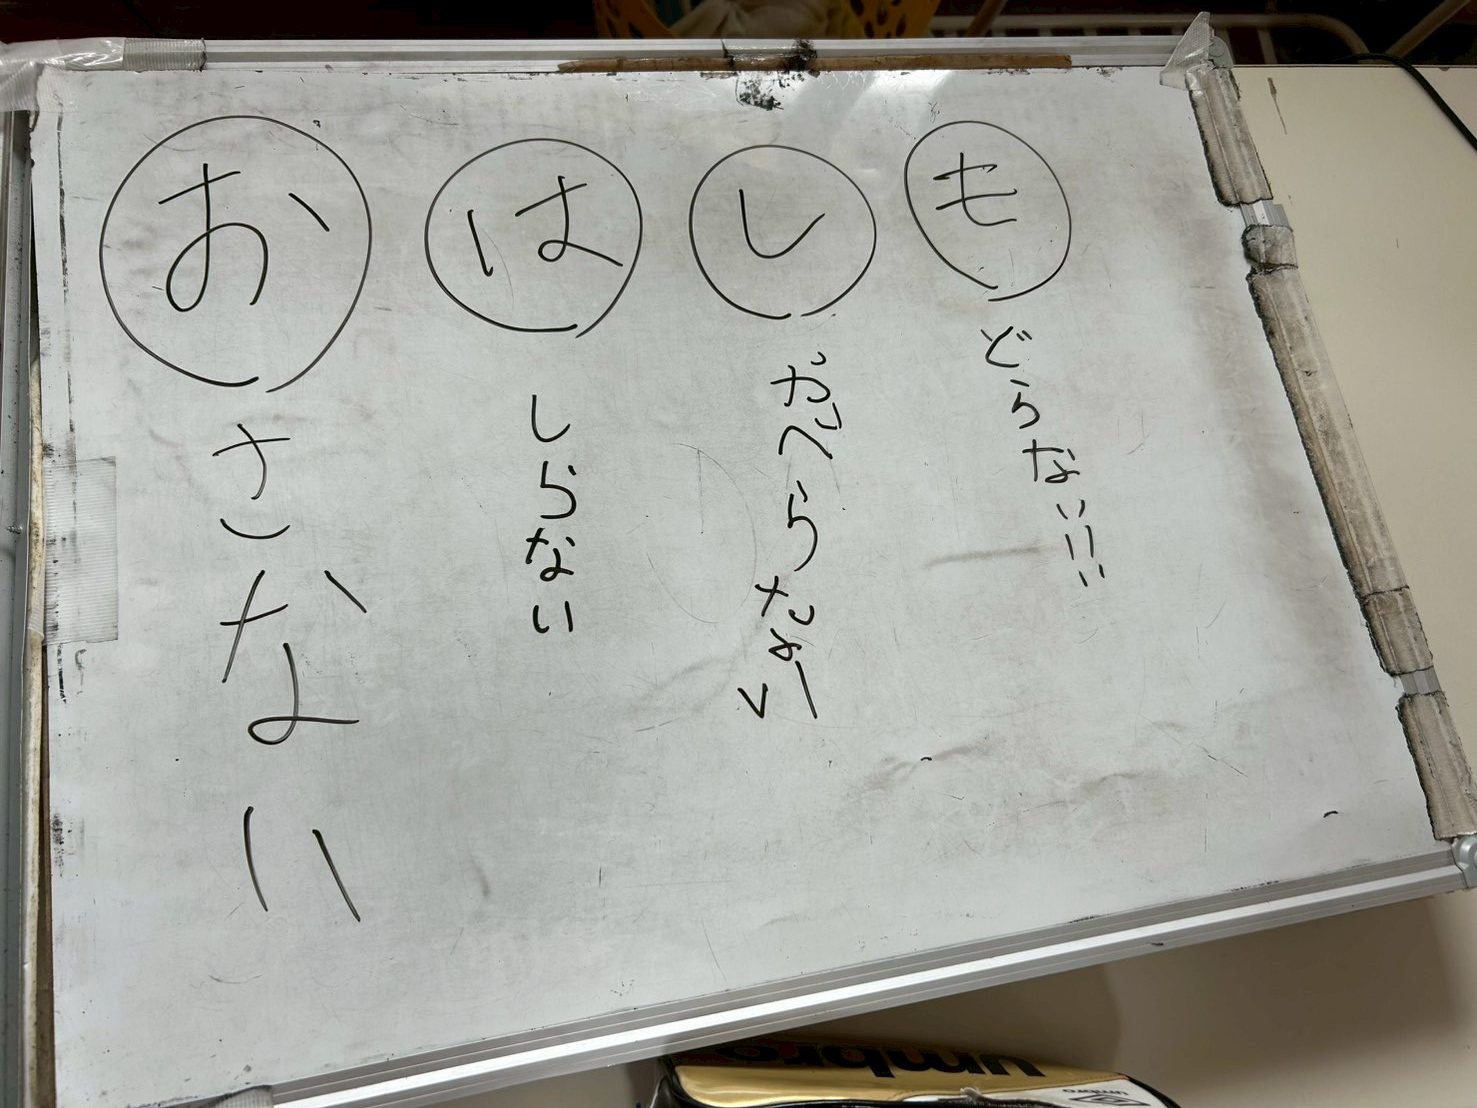 おさない
はしらない
しゃべらない
もどらない!!
umbro
umbro